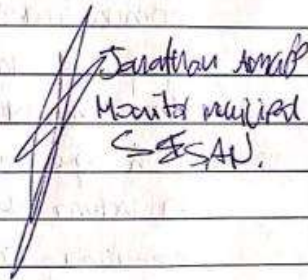 Jonathan
Monitor municipal
SESAN.